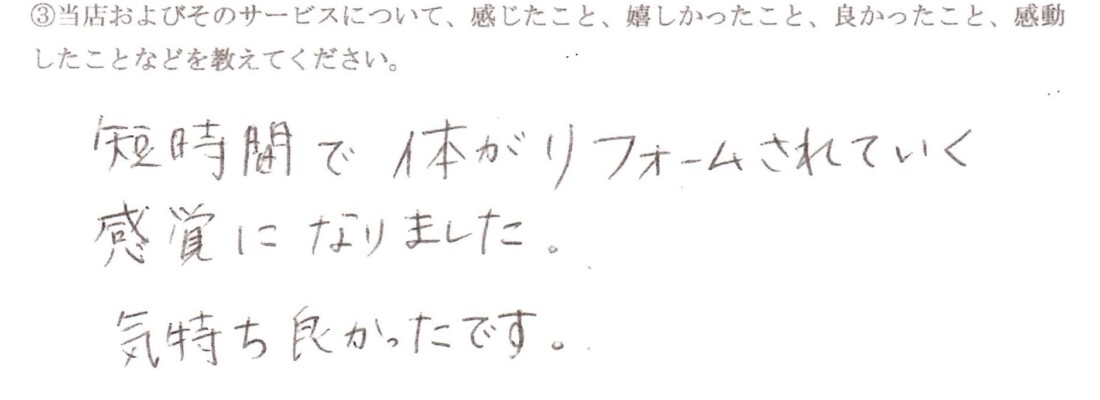 ③当店およびそのサービスについて、感じたこと、嬉しかったこと、良かったこと、感動
したことなどを教えてください。
短時間で体がリフォームされていく
感覚になりました。
気持ち良かったです。